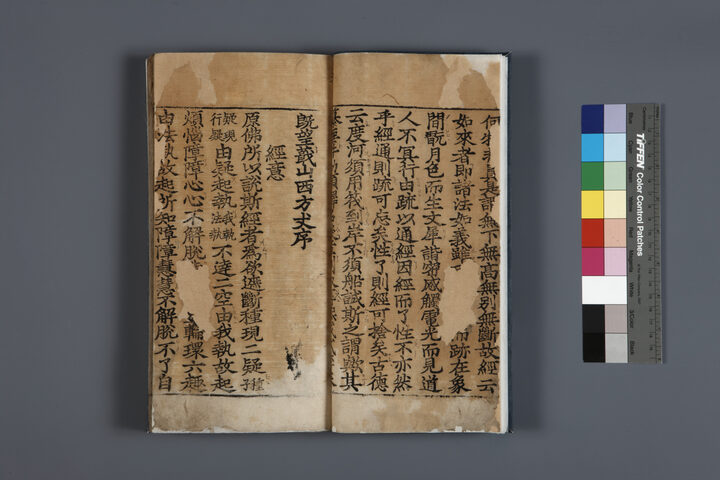 是謂無下無高無別無斷故經云
如來者即諸法如義雖 而跡在象
間翫月色而生文犀 密感觸電光而見道
人不冝行由疏以通經因經而了性不亦然
乎經通則疏可忘矣性了則經可捨矣古德
云度河須用筏到岸不須船誠斯之謂歟其
旣望 山西方丈序
經意
原佛所以說斯經者為欲遮斷種現二疑種子
疑現行疑由疑起執我執法執不達二空由我執故起
煩惱障障心心不解脫 輪環六趣
由法執故起所知障障慧慧不解脫不了自
TIFFEN Color Control Patches
Blue
Magenta
White
3/Color
Black